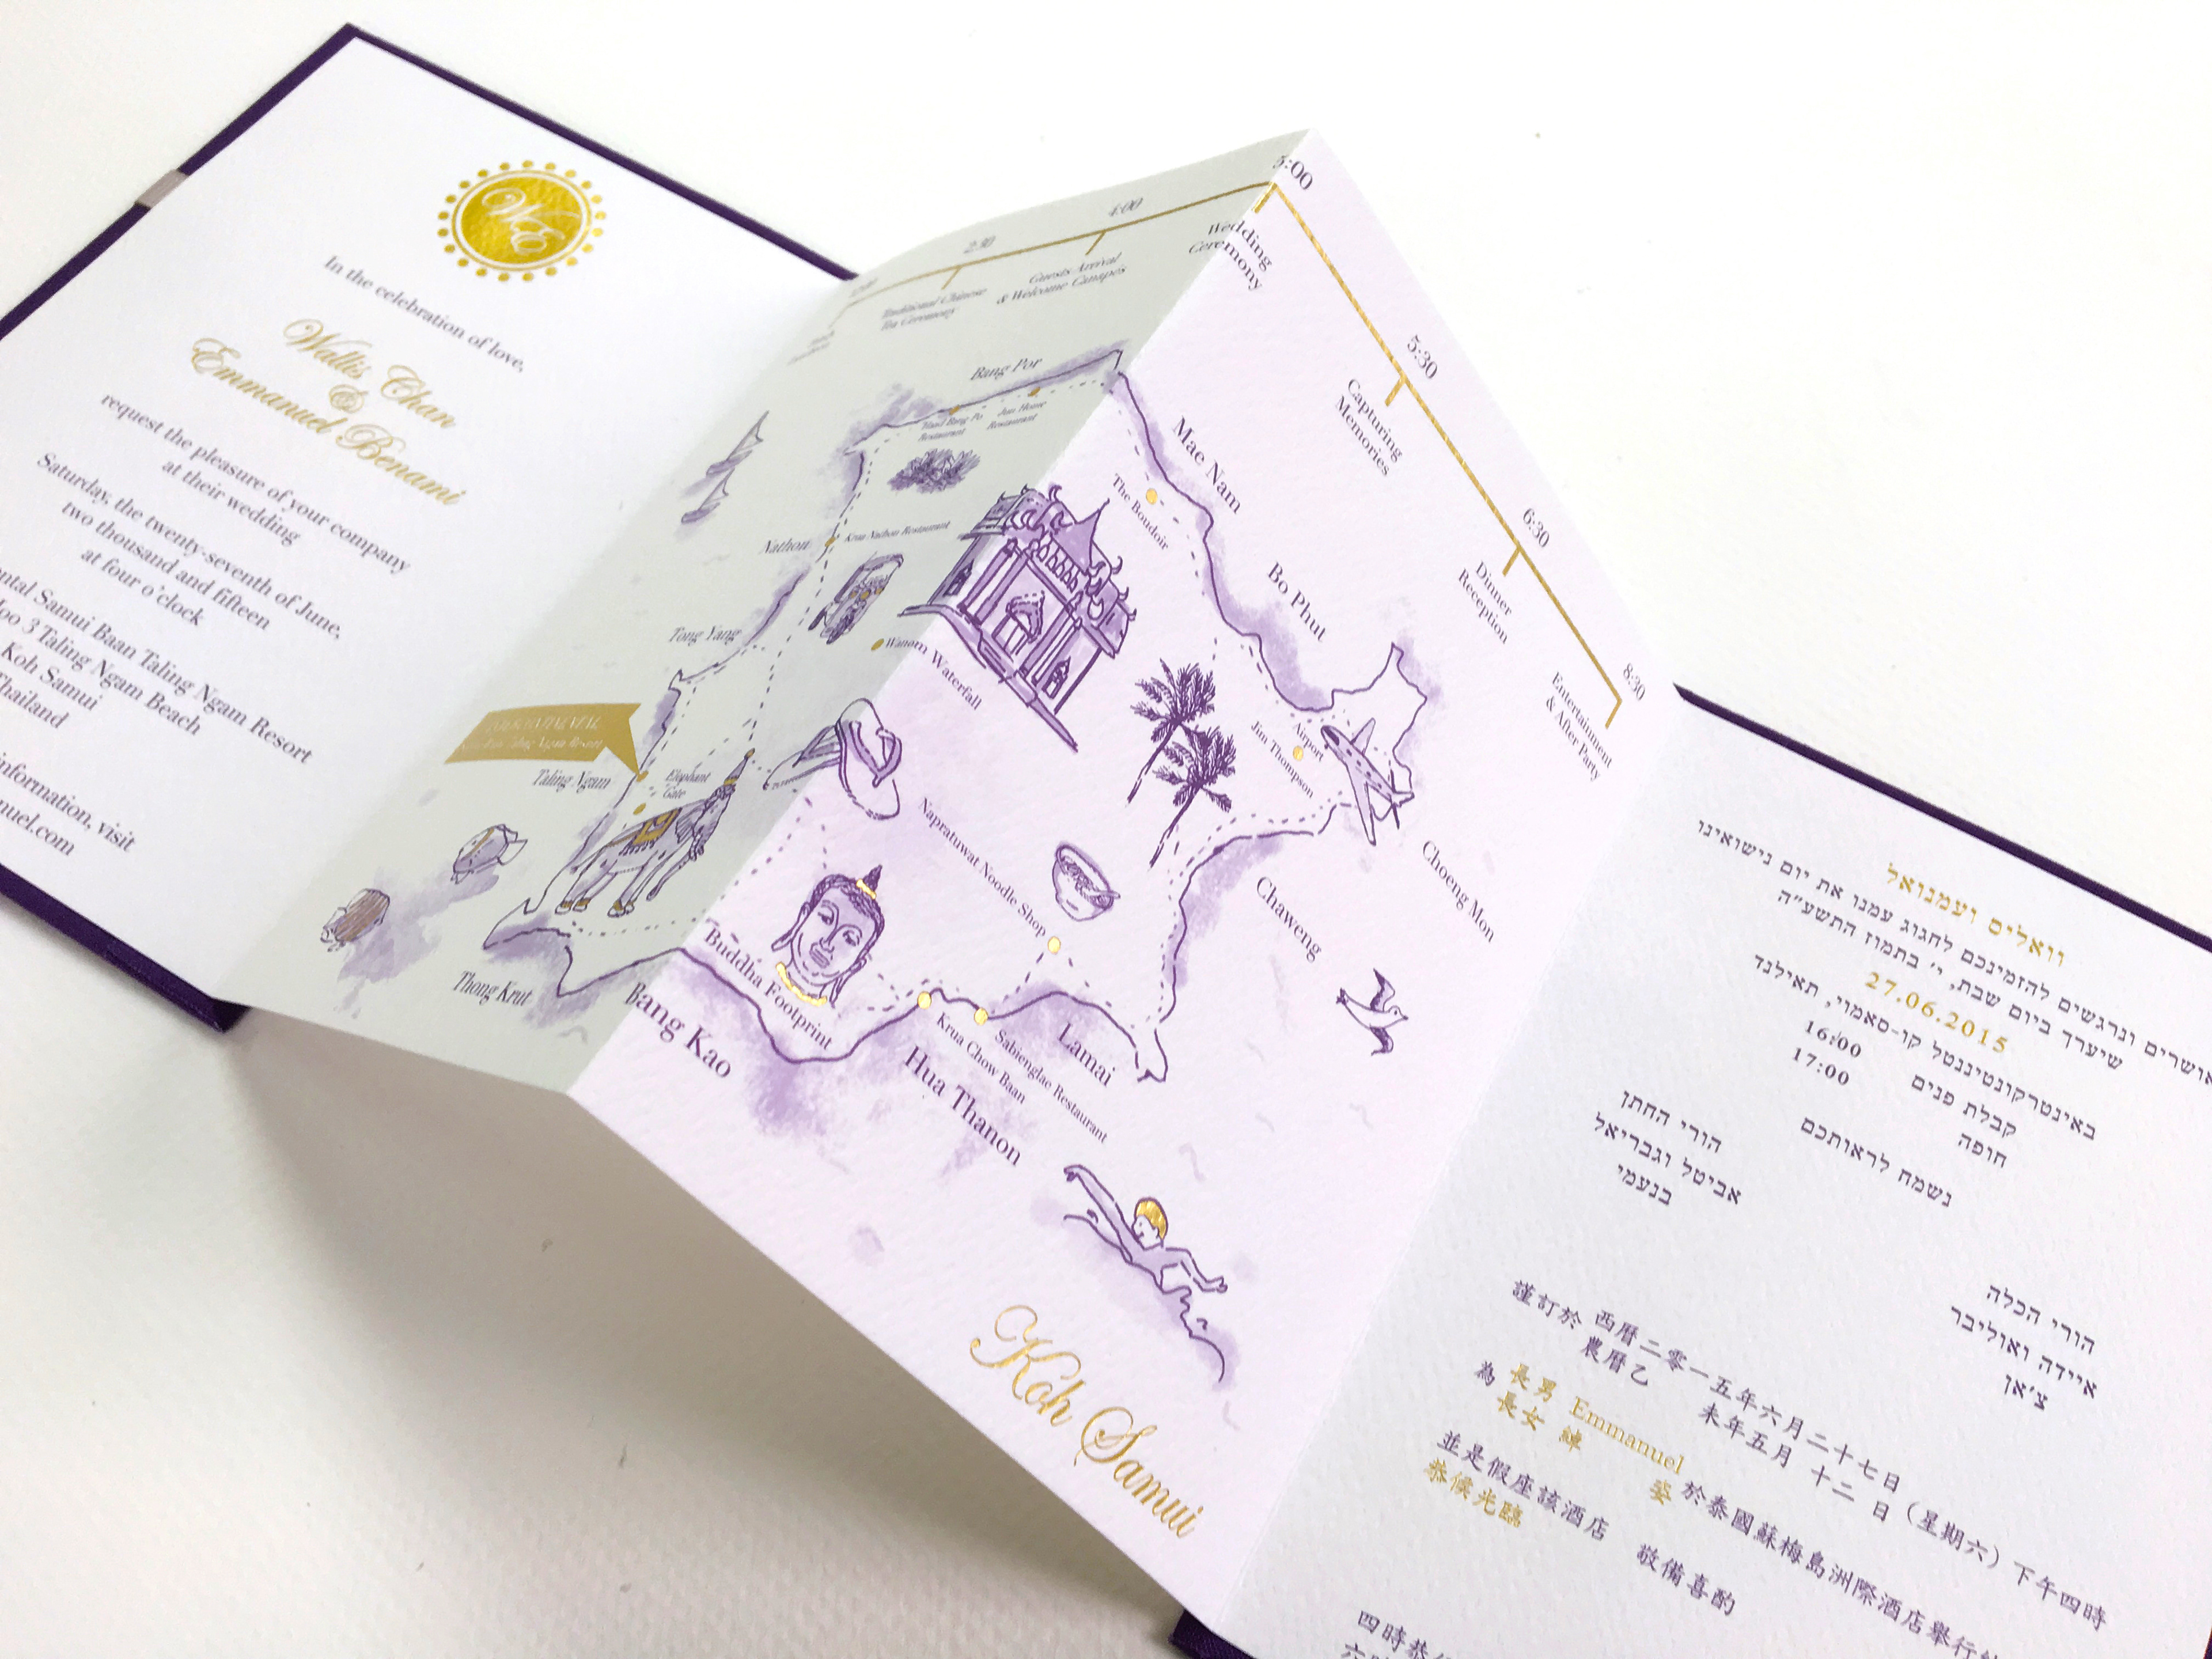 WE
In the celebration of love,
Wallis Chan
&
Emmanuel Benami
request the pleasure of your company
at their wedding
Saturday, the twenty-seventh of June,
two thousand and fifteen
at four o'clock
Samui Baan Taling Ngam Resort
3 Taling Ngam Beach
Koh Samui
Thailand
information, visit
2:30
Traditional Chinese
Tea Ceremony
4:00
Guests Arrival
& Welcome Canapés
5:00
Wedding
Ceremony
5:30
Capturing
Memories
6:30
Dinner
Reception
8:30
Entertainment
& After Party
Bang Por
Bang Po
Restaurant
Jun Hom
Restaurant
Mae Nam
The Boudoir
Nathon
Krua Nathon Restaurant
Bo Phut
Tong Yang
Wanom Waterfall
Airport
Jim Thompson
Taling Ngam Resort
Taling Ngam
Elephant
Gate
Napratuwat Noodle Shop
Choeng Mon
Chaweng
Thong Krut
Buddha Footprint
Bang Kao
Krua Chow Baan
Sabienglae Restaurant
Lamai
Hua Thanon
Koh Samui
וואליס ועמנואל
ונרגשים להזמינכם לחגוג עמנו את יום נישואינו
שיערך ביום שבת, י' בתמוז התשע"ה
27.06.2015
באינטרקונטיננטל קו-סאמוי, תאילנד
קבלת פנים 16:00
חופה 17:00
נשמח לראותכם
הורי החתן
אביטל וגבריאל
בנעמי
הורי הכלה
איידה ואוליבר
צ'אן
謹訂於 西曆二零一五年六月二十七日(星期六)下午四時
農曆乙未年五月十二日
為 長男 Emmanuel
長女 綽姿 於泰國蘇梅島洲際酒店舉行
並是假座該酒店 敬備喜酌
恭候光臨
四時恭